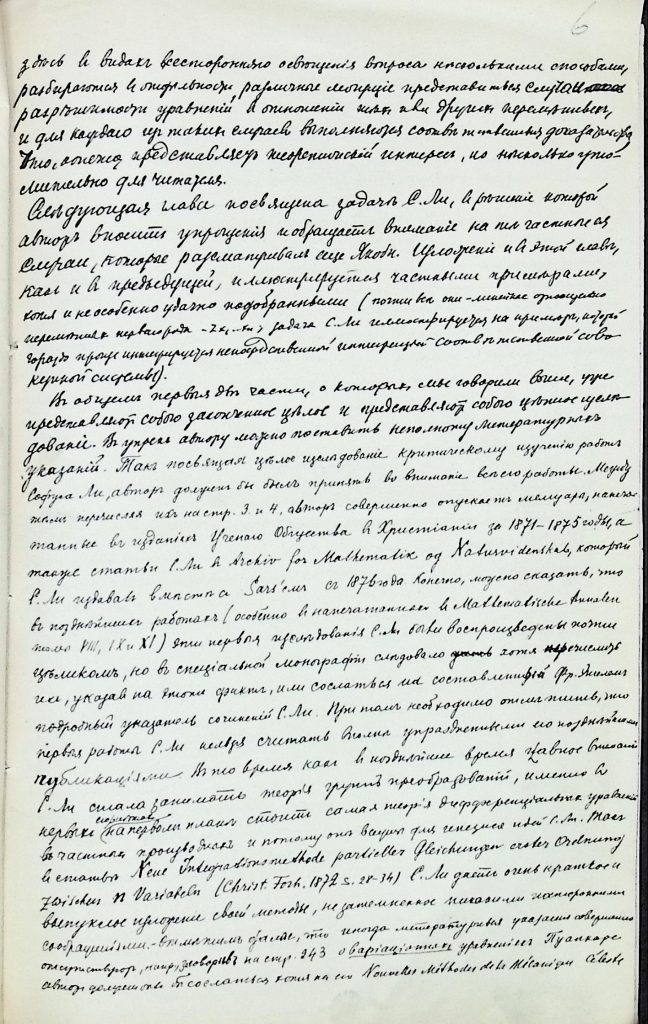 6
здѣсь въ видахъ всесторонняго освѣщенія вопроса нѣсколькими способами,
разбираются въ отдѣльности различные могущіе представиться случаи
разрѣшимости уравненій въ отношеніи тѣхъ или другихъ перемѣнныхъ,
и для каждаго изъ такихъ случаевъ выполняются соотвѣтственныя доказательства
Это, конечно, представляетъ теоретическій интересъ, но нѣсколько уто-
мительно для читателя.
Слѣдующая глава посвящена задачѣ С. Ли, въ рѣшеніе которой
авторъ вноситъ упрощенія и обращаетъ вниманіе на тѣ частные
случаи, которые разсматривалъ еще Якоби. Изложеніе и въ этой главѣ,
какъ и въ предыдущей, иллюстрируется частными примѣрами,
хотя и не особенно удачно подобранными (почти всѣ они - линейные относительно
перемѣнныхъ первагорода задача С. Ли иллюстрируется на примѣрѣ, который
гораздо проще интегрируется непосредственной интеграціей соотвѣтственной сово
купной системы).
Въ общемъ первыя двѣ части, о которыхъ мы говорили выше, уже
представляютъ собою законченное цѣлое и представляютъ собою цѣнное изслѣ
дованіе. Въ упрекъ автору можно поставить неполноту литературныхъ
указаній. Такъ посвящая цѣлое изслѣдованіе критическому изученію работъ
Софуса Ли, авторъ долженъ бы былъ принять во вниманіе всѣ его работы. Между
тѣмъ перечисляя ихъ на стр. 3 и 4, авторъ совершенно опускаетъ мемуары, напеча-
танные въ изданіяхъ Ученаго Общества въ Христіаніи за 1871-1875 годы, а
также статьи С. Ли въ Archiv for Mathematik og Naturvidenskab, который
С. Ли издавалъ вмѣстѣ съ Sars'емъ съ 1876 года. Конечно, можно сказать, что
въ позднѣйшихъ работахъ (особенно въ напечатанныхъ въ Mathematische Annalen
томы VIII, IX и XI) эти первыя изслѣдованія С. Ли были воспроизведены почти
цѣликомъ, но въ спеціальной монографіи слѣдовало хотя перечислить
ихъ, указавъ на этотъ фактъ, или сослаться на составленный Фр. Энгелемъ
подробный указатель сочиненій С. Ли. При томъ необходимо отмѣтить, что
первыя работы С. Ли нельзя считать вполнѣ упраздненными его позднѣйшими
публикаціями. Въ то время какъ въ позднѣйшее время главное вниманіе
С. Ли стала занимать теорія группъ преобразованій, именно въ
первыхъ на первомъ планѣ стоитъ самая теорія дифференціальныхъ уравненій
въ частныхъ производныхъ и потому онѣ важны для генезиса идей С. Ли. Такъ
въ статьѣ Neue Integrationsmethode partieller Gleichungen erster Ordnung
zwischen n Variabeln (Christ. Forh. 1872 S. 28-34) С. Ли даетъ очень краткое и
выпуклое изложеніе своей методы, не затемненное никакими посторонними
соображеніями. - Отмѣтимъ далѣе, что иногда литературныя указанія совершенно
отсутствуютъ, напр., говоря на стр. 243 о варіаціонныхъ уравненіяхъ Пуанкаре
авторъ долженъ бы былъ сослаться хотя на его Nouvelles Méthodes de la Mécanique Céleste